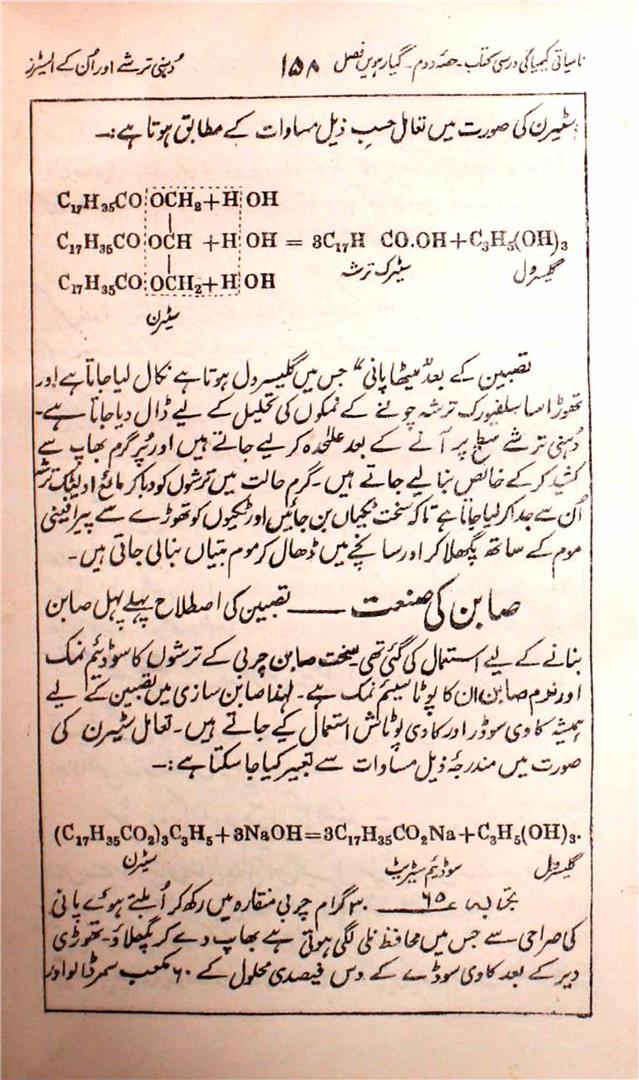 نامیاتی کیمیا کی درسی کتاب ۔ حصّہ دوم ۔ گیارہویں فصل ۱۵۸ دُہنی ترشے اور اُن کے ایسٹرز
سٹیرن کی صورت میں تعامل حسبِ ذیل مساوات کے مطابق ہوتا ہے :۔
C₁₇H₃₅CO OCH₂+H OH
C₁₇H₃₅CO OCH +H OH = 3C₁₇H CO.OH+C₃H₅(OH)₃
سٹیرک ترشہ گلیسرول
C₁₇H₃₅CO OCH₂+H OH
سٹیرن
تصبین کے بعد ”میٹھا پانی“ جس میں گلیسرول ہوتا ہے نکال لیا جاتا ہے اور
تھوڑا سا سلفیورک ترشہ چونے کے نمکوں کی تحلیل کے لیے ڈال دیا جاتا ہے۔
دُہنی ترشے سطح پر آنے کے بعد علٰحدہ کر لیے جاتے ہیں اور پُر گرم بھاپ سے
کشید کر کے خالص بنا لیے جاتے ہیں۔ گرم حالت میں ترشوں کو دبا کر مائع اولیئک ترشہ
اُن سے جدا کر لیا جاتا ہے تاکہ سخت ٹکیاں بن جائیں اور ٹکیوں کو تھوڑے سے پیرافینی
موم کے ساتھ پگھلا کر اور سانچے میں ڈھال کر موم بتیاں بنا لی جاتی ہیں۔
صابن کی صنعت ـــــ تصبین کی اصطلاح پہلے پہل صابن
بنانے کے لیے استعمال کی گئی تھی۔ سخت صابن چربی کے ترشوں کا سوڈیئم نمک
اور نرم صابن ان کا پوٹاسیئم نمک ہے۔ لہٰذا صابن سازی میں تصبین کے لیے
ہمیشہ کاوی سوڈا اور کاوی پوٹاش استعمال کیے جاتے ہیں۔ تعامل سٹیرن کی
صورت میں مندرجۂ ذیل مساوات سے تعبیر کیا جا سکتا ہے :۔
(C₁₇H₃₅CO₂)₃C₃H₅+3NaOH=3C₁₇H₃₅CO₂Na+C₃H₅(OH)₃.
سٹیرن سوڈیئم سٹیریٹ گلیسرول
تجربہ ۶۵ ـــــ ۳۰ گرام چربی منقارہ میں رکھ کر اُبلتے ہوئے پانی
کی صراحی سے جس میں محافظ نلی لگی ہوتی ہے بھاپ دے کر پگھلاؤ۔ تھوڑی
دیر کے بعد کاوی سوڈے کے دس فیصدی محلول کے ۶۰ مکعب سمر ڈالو اور